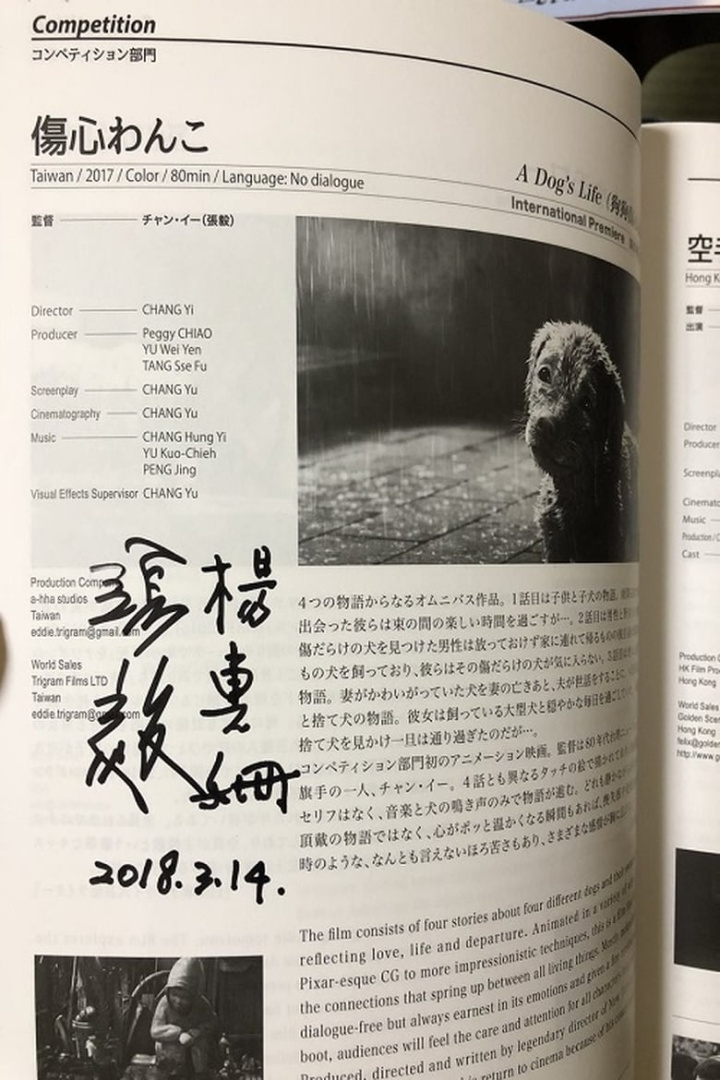 Competition
コンペティション部門
傷心わんこ
Taiwan / 2017 / Color / 80min / Language: No dialogue
A Dog's Life (狗狗
International Premiere
監督 チャン・イー(張毅)
Director CHANG Yi
Producer Peggy CHIAO
YU Wei Yen
TANG Sse Fu
Screenplay CHANG Yu
Cinematography CHANG Yu
Music CHANG Hung Yi
YU Kuo-Chieh
PENG Jing
Visual Effects Supervisor CHANG Yu
Production
a-hha studios
Taiwan
eddie.trigram@gmail.com
World Sales
Trigram Films LTD
Taiwan
eddie.trigram@gmail.com
張毅
楊惠姍
2018.3.14.
4つの物語からなるオムニバス作品。1話目は子供と子犬の物語。
出会った彼らは束の間の楽しい時間を過ごすが…。2話目は男性と
傷だらけの犬を見つけた男性は放っておけず家に連れて帰るものの
もの犬を飼っており、彼らはその傷だらけの犬が気に入らない。3話目は
物語。妻がかわいがっていた犬を妻の亡きあと、夫が世話をすることに。
と捨て犬の物語。彼女は飼っている大型犬と穏やかな毎日を過ごして
捨て犬を見かけ一旦は通り過ぎたのだが…。
コンペティション部門初のアニメーション映画。監督は80年代台湾ニュー
旗手の一人、チャン・イー。4話とも異なるタッチの絵で描かれて
セリフはなく、音楽と犬の鳴き声のみで物語が進む。どれも静かな
頂戴の物語ではなく、心がポッと温かくなる瞬間もあれば、
時のような、なんとも言えないほろ苦さもあり、さまざまな感情が胸に
The film consists of four stories about four different dogs and their
reflecting love, life and departure. Animated in a variety of
Pixar-esque CG to more impressionistic techniques, this is a film
the connections that spring up between all living things. Mostly
dialogue-free but always earnest in its emotions and given a
boot, audiences will feel the care and attention for all characters
Produced, directed and written by legendary director of New
return to cinema because of his
空手
Hong K
監督
出演
Director
Producer
Screenpla
Cinemato
Music
Production / D
Cast
Production C
HK Film Pro
Hong Kong
World Sales
Golden Scen
Hong Kong
felix@golde
http://www.g